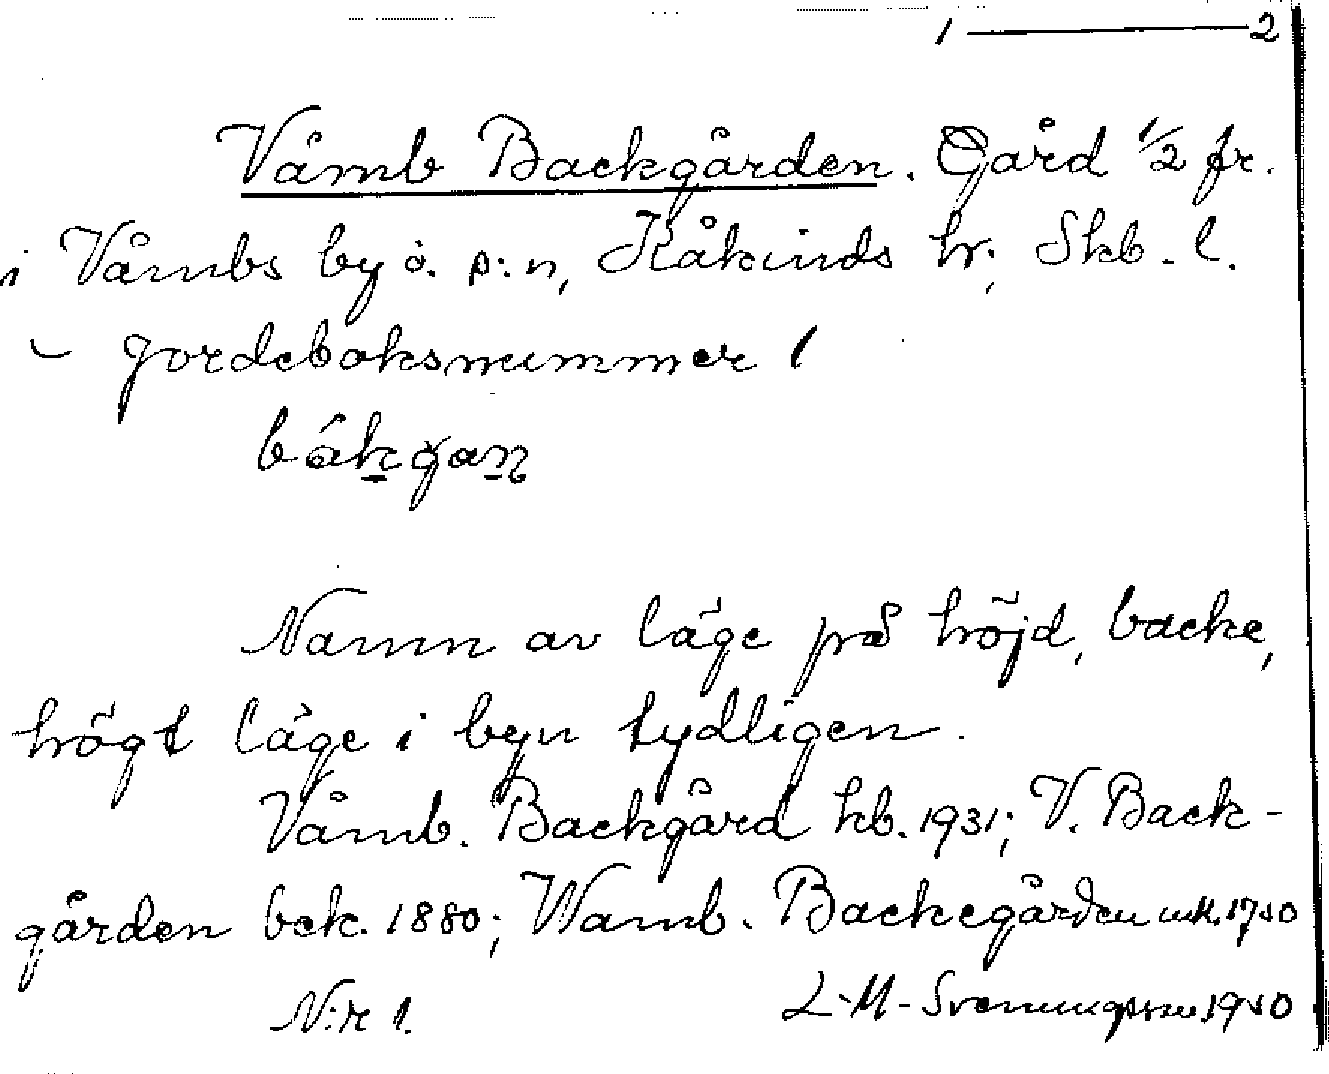 1 — 2
Våmb Backgården. Gård 1/2 fr.
i Våmbs by o. s:n, Kåkinds hr; Skb. l.
– Jordeboksnummer 1
båkgan
Namn av läge på höjd, backe,
högt läge i byn tydligen.
Våmb. Backgård kb. 1931; V. Back-
gården bek. 1880; Wamb. Backegården 1750
N:r 1. 1950